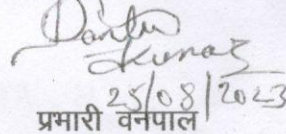 Dantu
Kumar
25/08/2023
प्रभारी वनपाल